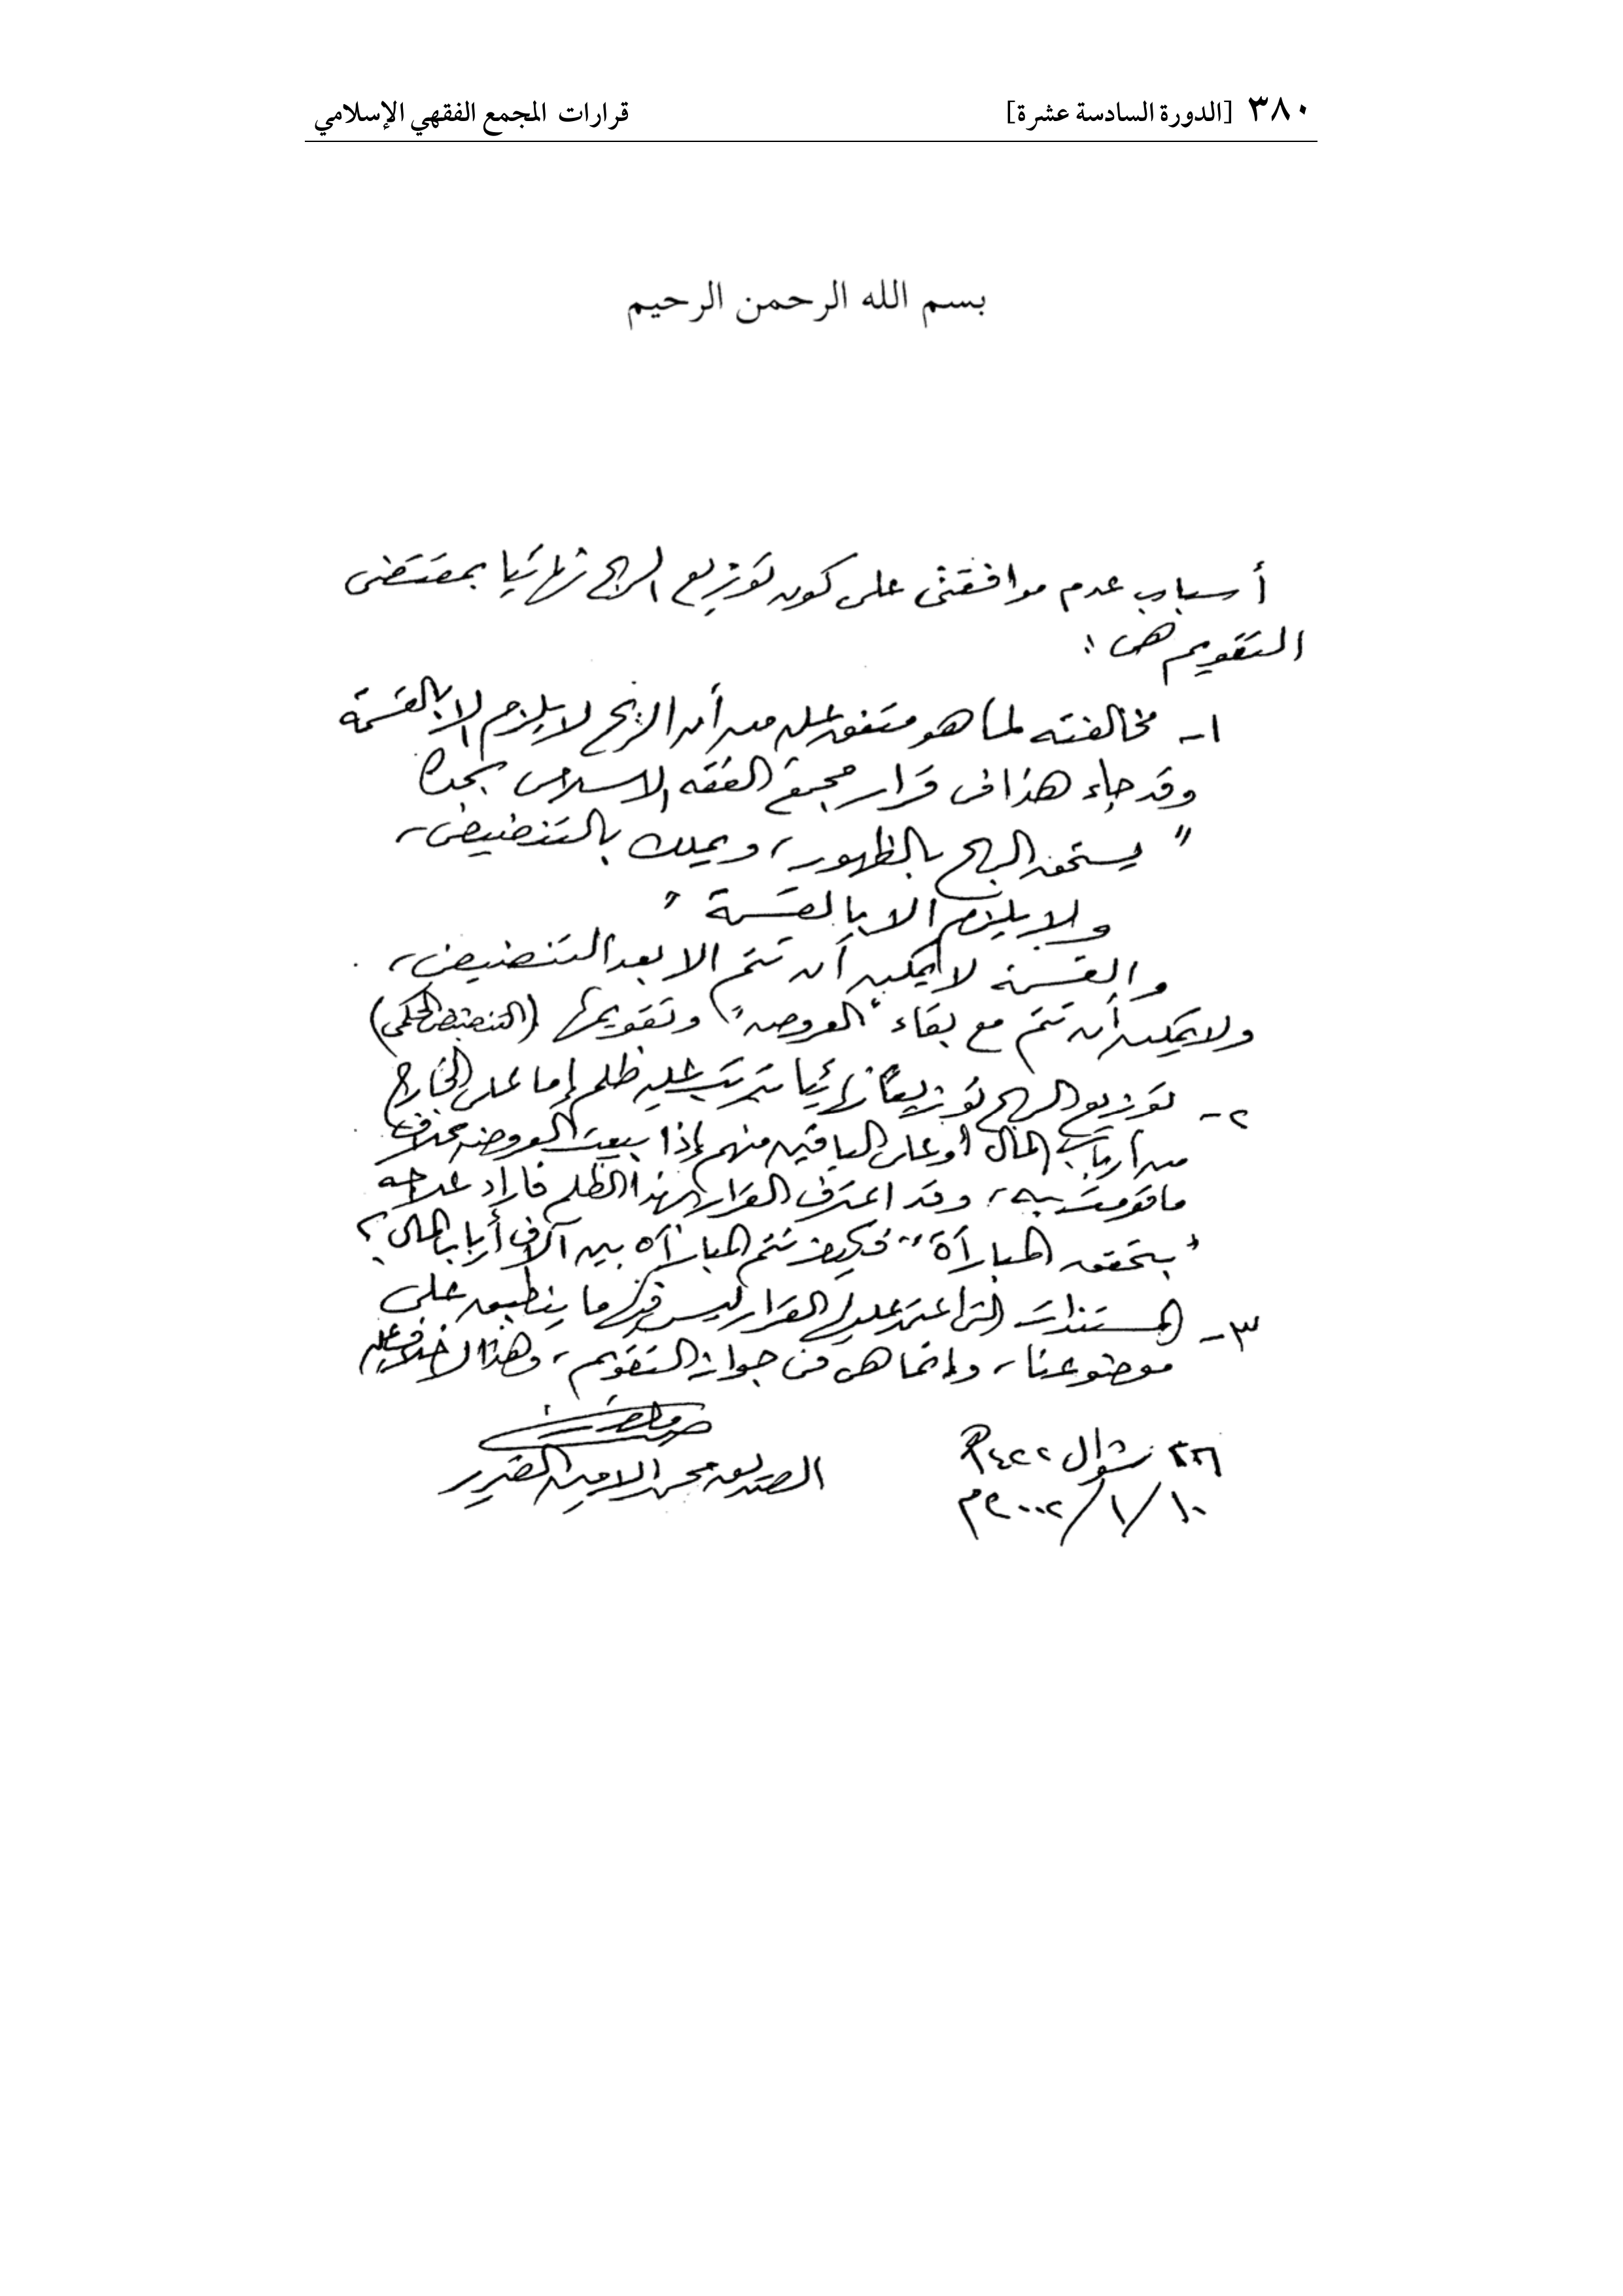 ٣٨٠ [الدورة السادسة عشرة] قرارات المجمع الفقهي الإسلامي
بسم الله الرحمن الرحيم
أسباب عدم موافقتى على كون توزيع الربح نهائيا بمقتضى
التقويم هى :
١- مخالفته لما هو متفق عليه من أن الربح لا يلزم الا بالقسمة
وقد جاء هذا فى قرار مجمع الفقه الاسلامى بجدة
" يستحق الربح بالظهور، ويملك بالتنضيض،
ولا يلزم الا بالقسمة "
والقسمة لا يمكن أن تتم الا بعد التنضيض،
ولا يمكن أن تتم مع بقاء "العروض" وتقويمها (التنضيض الحكمى)
٢- توزيع الربح توزيعاً نهائيا يترتب عليه ظلم إما على الخارج
من أرباب المال أو على الباقين منهم إذا بيعت العروض بخلاف
ما قومت به، وقد اعترف القرار بهذا الظلم فأراد علاجه
"بتحقق المبارأة" فكيف تتم المبارأه بين آلاف أرباب المال؟
٣- المستندات التى اعتمد عليها القرار ليس فيها ما ينطبق على
موضوعنا، وانما هى فى جواز التقويم، وهذا لا خلاف عليه
الصديق محمد الامين الضرير
٢٦ شوال ١٤٢٢هـ
١٠/١/٢٠٠٢م